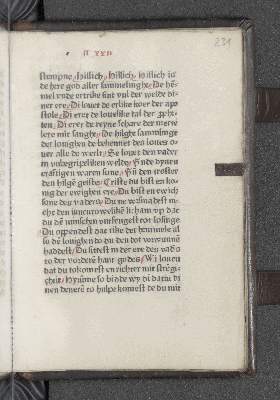 R XXII
231
stempne/Hillich/Hillich/hillich is
de here god aller sammelinghe/De he-
mel unde ertrike sint vul der werlde di-
ner ere/Di louet de erlike koer der apo
stole/Di eret de louelike tal der
ten/Di eret de reyne schare der merte
lere mit sanghe/De hilghe sammlinge
der louighen de bekennet des louet o-
uer alle de werlt/Se louet den vader
in unbegripeliken welde/Unde dynen
eraftigen waren sone/Un den troster
den hilge geiste/Criste du bist en ko-
ning der ewighen ere/Du bist en ewich
sone des vaders/Du ne vorsmadest ni-
cht den iuncurowelike licham up dat
du den minschen untfengest to losinge
Du oppendest dat rike der hemmele al
so de louighen do du den dot vorwunne
haddest/Du sittest in der ere des vade
to der vorderen hant godes/Wi louen
dat du tokomest en richter mit strengi-
cheit/Hyrumme so bidde wy di dattu di-
nen deneren to hulpe komest de du mit